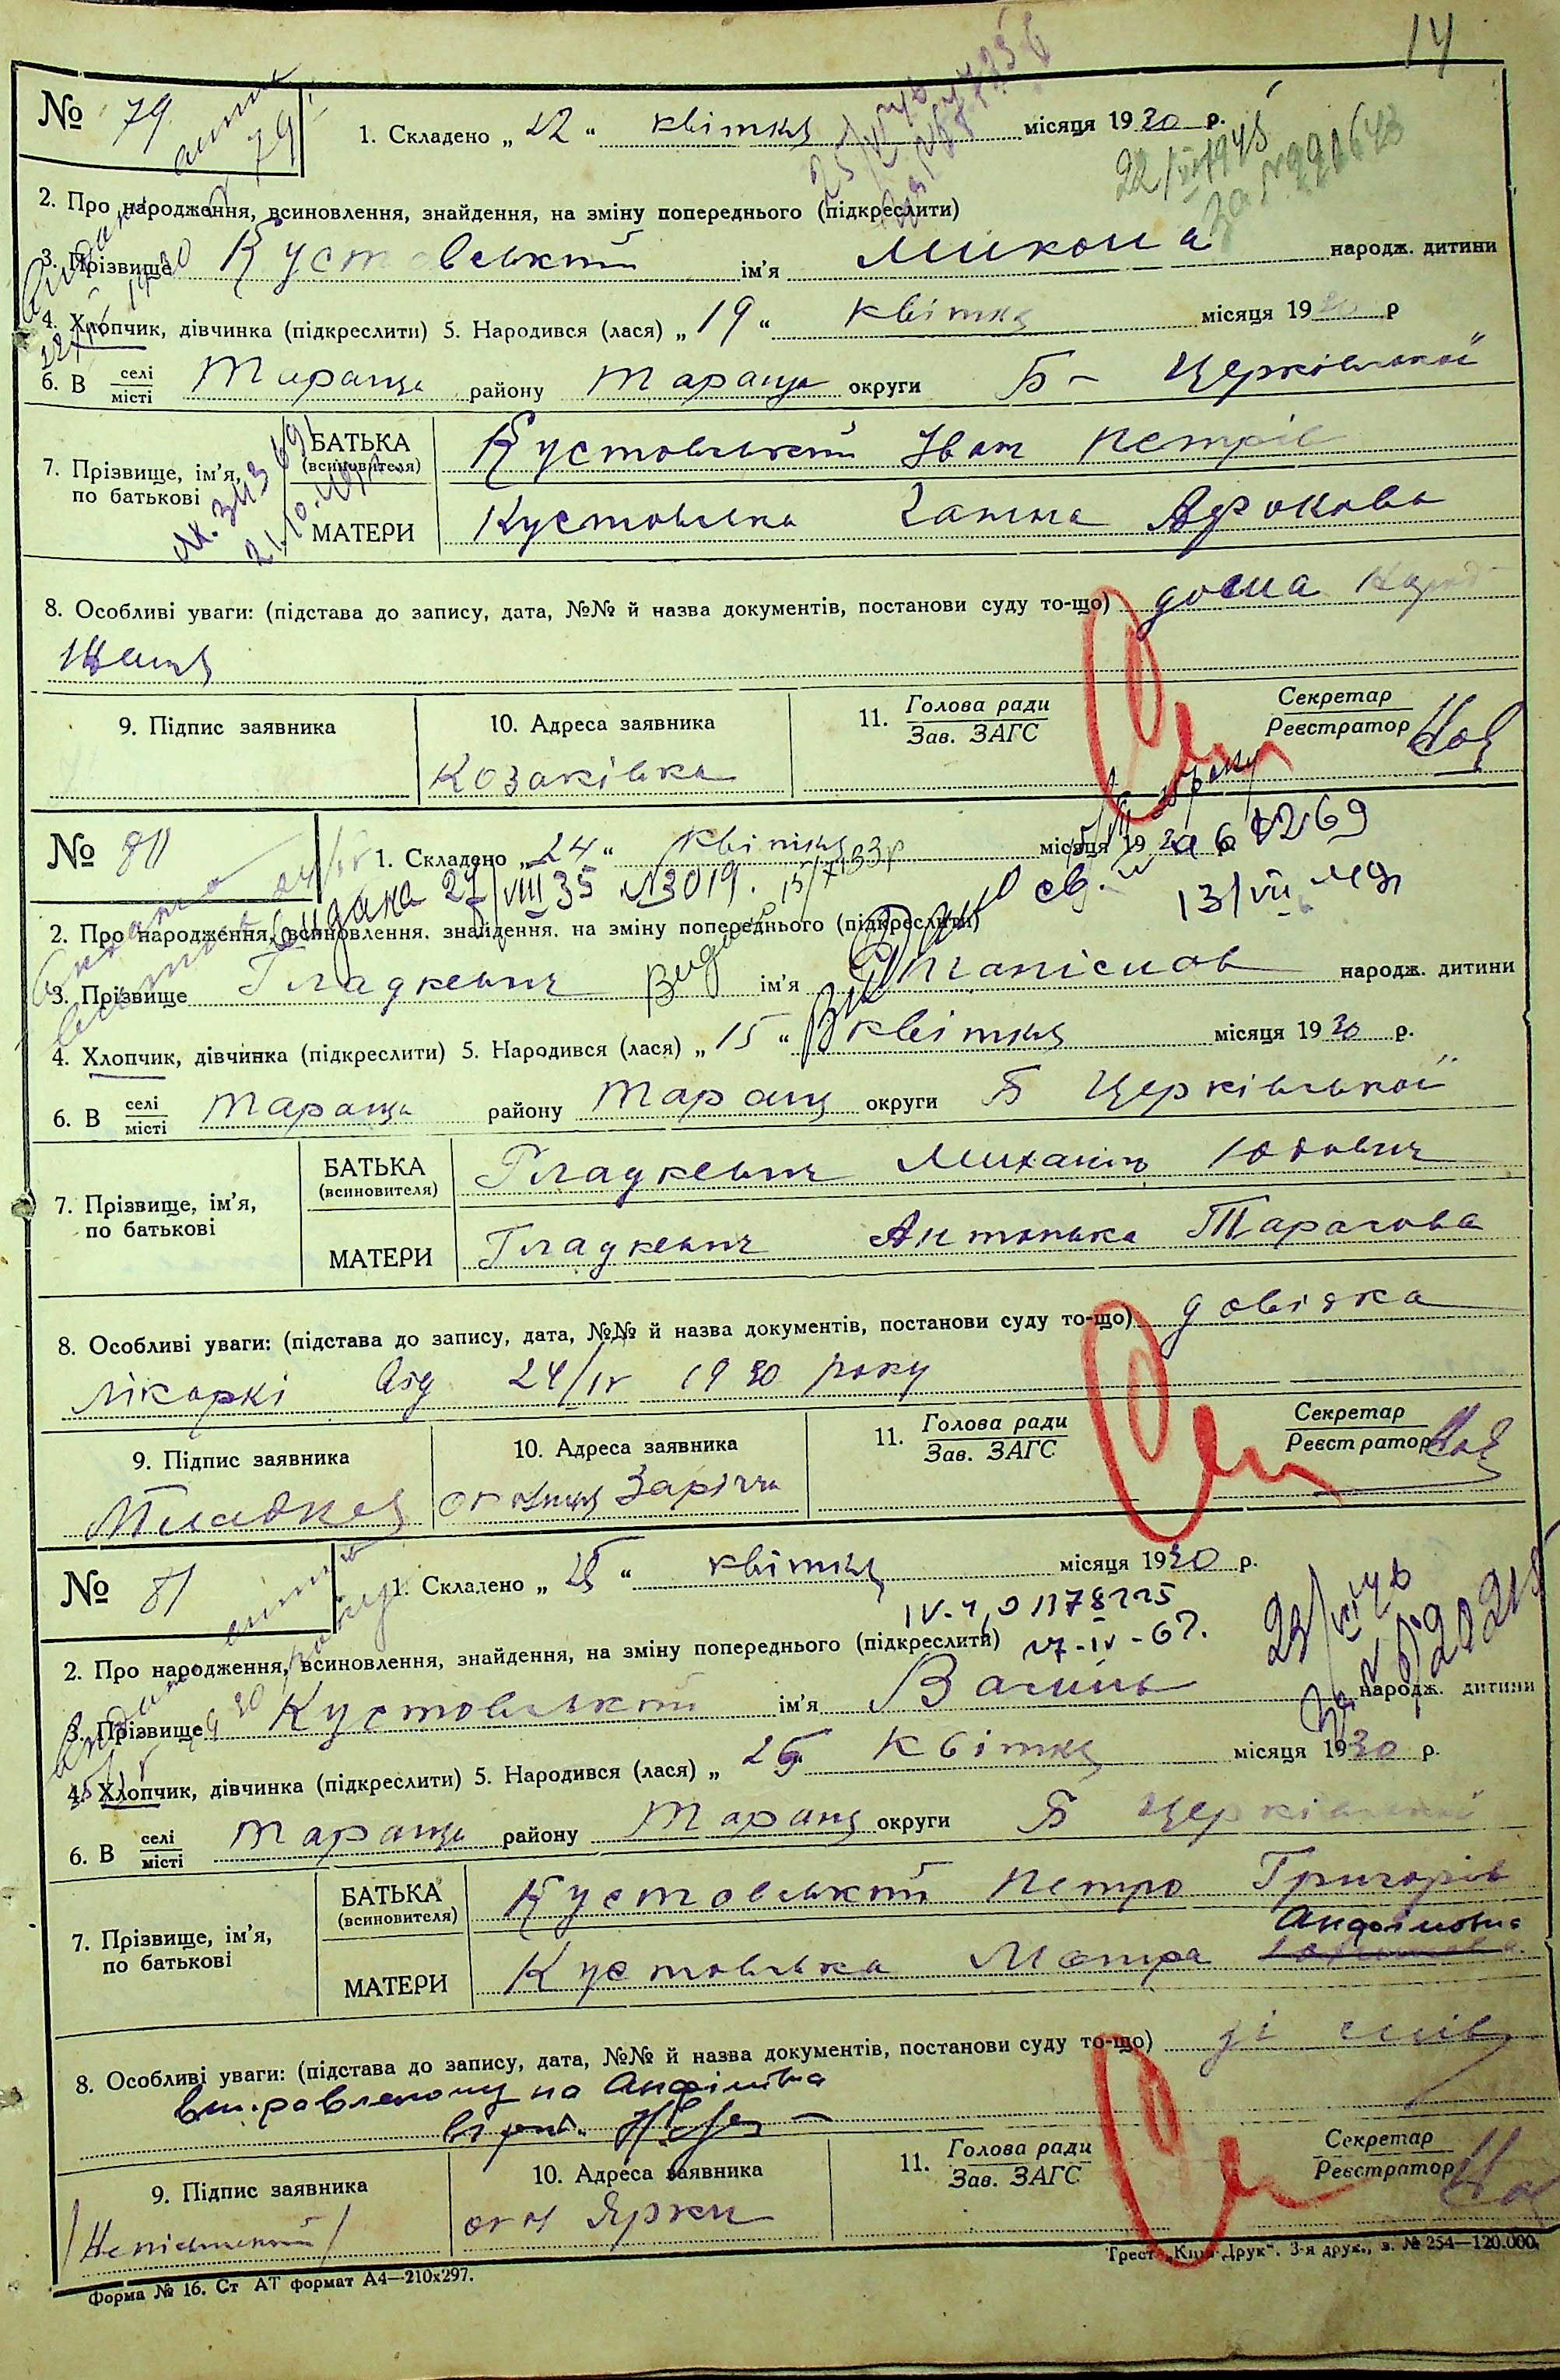 14
№ 79
1. Складено „ 22 “ квітня місяця 1930 р.
22/VI 1945
2. Про народження, всиновлення, знайдення, на зміну попереднього (підкреслити)
3. Прізвище Кустовський ім'я Микола народж. дитини
4. Хлопчик, дівчинка (підкреслити) 5. Народився (лася) „ 19 “ квітня місяця 1930 р
6. В селі/місті Тараща району Тараща округи Б – Церківської
7. Прізвище, ім'я, по батькові
БАТЬКА (всиновителя) Кустовський Іван Петрів
МАТЕРИ Кустовська Ганна
8. Особливі уваги: (підстава до запису, дата, №№ й назва документів, постанови суду то-що) дома
9. Підпис заявника
10. Адреса заявника
Козаківка
11. Голова ради / Зав. ЗАГС
Секретар / Реєстратор
№ 80
1. Складено „ 24 “ квітня місяця 19 р
видана 27/VIII 35 №3019.
13/VII
2. Про народження, всиновлення. знайдення. на зміну попереднього (підкреслити)
3. Прізвище Гладкевич ім'я Станіслав народж. дитини
4. Хлопчик, дівчинка (підкреслити) 5. Народився (лася) „ 15 “ квітня місяця 1930 р.
6. В селі/місті Тараща району Таращ округи Б Церківської
7. Прізвище, ім'я, по батькові
БАТЬКА (всиновителя) Гладкевич Михайло
МАТЕРИ Гладкевич Антоніна Тарасова
8. Особливі уваги: (підстава до запису, дата, №№ й назва документів, постанови суду то-що) довідка
лікаркі від 24/IV 1930 року
9. Підпис заявника
10. Адреса заявника
околиця Заріччя
11. Голова ради / Зав. ЗАГС
Секретар / Реєстратор
№ 81
1. Складено „ 25 “ квітня місяця 1930 р.
2. Про народження, всиновлення, знайдення, на зміну попереднього (підкреслити)
3. Прізвище Кустовський ім'я Василь народж. дитини
4. Хлопчик, дівчинка (підкреслити) 5. Народився (лася) „ 25 квітня місяця 1930 р.
6. В селі/місті Тараща району Таращ округи Б Церківської
7. Прізвище, ім'я, по батькові
БАТЬКА (всиновителя) Кустовський Петро Григорів
Анфимовна
МАТЕРИ Кустовська Мотра
8. Особливі уваги: (підстава до запису, дата, №№ й назва документів, постанови суду то-що) зі слів
9. Підпис заявника
/Неписьменний/
10. Адреса заявника
окол Ярки
11. Голова ради / Зав. ЗАГС
Секретар / Реєстратор
Форма № 16. Ст АТ формат А4—210х297.
Трест „Київ-Друк“. 3-я друк., з. № 254—120.000.